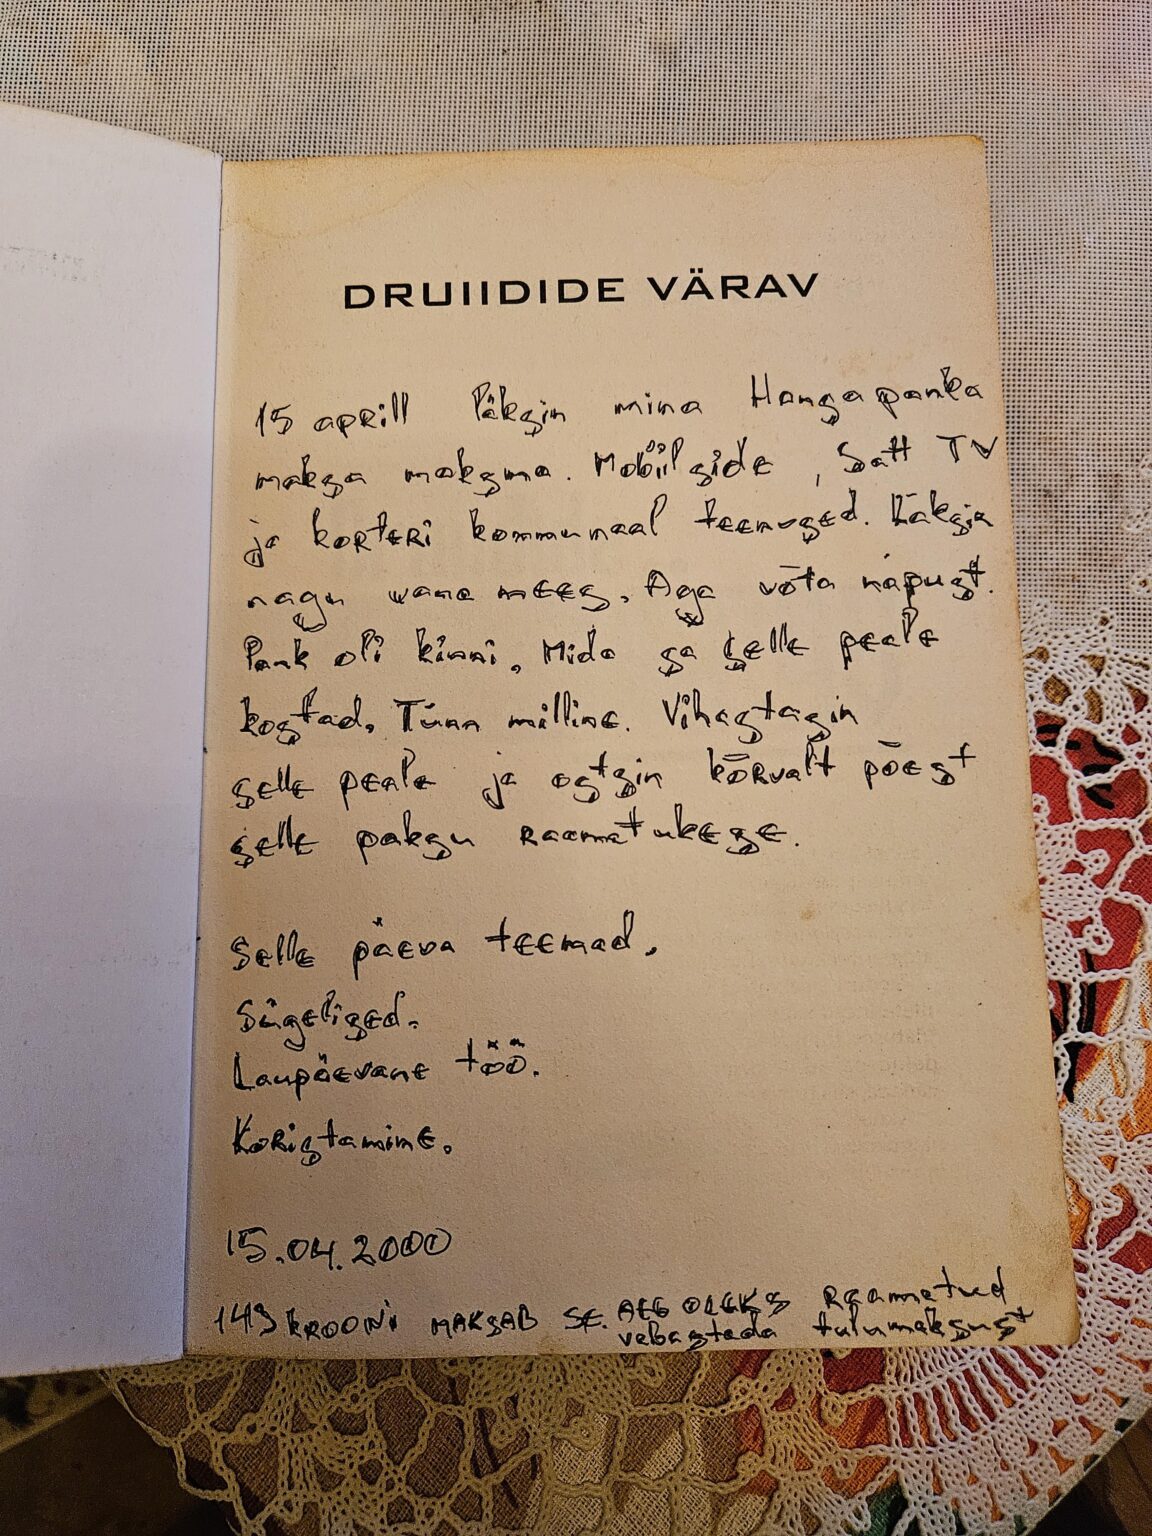 DRUIIDIDE VÄRAV
15 aprill läksin mina Hansapanka
maksa maksma. Mobiil side, Satt TV
ja korteri kommunaal teenused. Läksin
nagu vana mees. Aga võta näpust.
Pank oli kinni. Mida sa selle peale
kostad. Tänn milline. Vihastasin
selle peale ja ostsin kõrvalt põest
selle paksu raamatukese.
Selle päeva teemad.
Sügelised.
Laupäevane töö.
Koristamine.
15.04.2000
149 KROONI MAKSAB SE. AEG OLEKS raamatud
vabastada tulumaksust